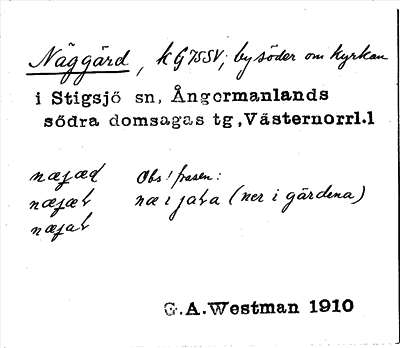 Näggärd, kG7SSV; by söder om kyrkan
i Stigsjö sn, Ångermanlands
södra domsagas tg, Västernorrl.l
næjæd Obs! frasen:
næjæt næ i jata (ner i gärdena)
næjat
G.A.Westman 1910